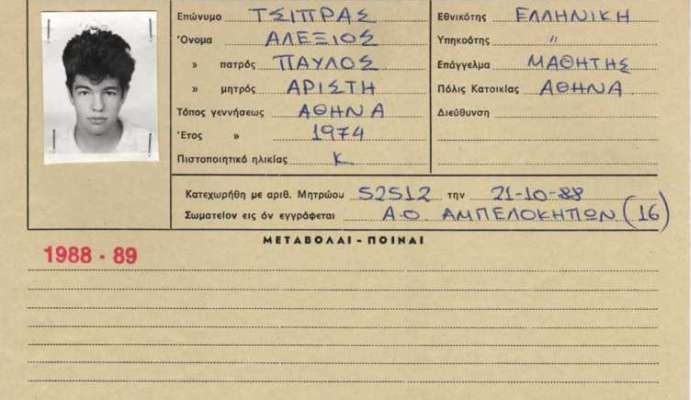 Επώνυμο ΤΣΙΠΡΑΣ
Ὄνομα ΑΛΕΞΙΟΣ
» πατρός ΠΑΥΛΟΣ
» μητρός ΑΡΙΣΤΗ
Τόπος γεννήσεως ΑΘΗΝΑ
Ἔτος » 1974
Πιστοποιητικό ηλικίας Κ
Εθνικότης ΕΛΛΗΝΙΚΗ
Υπηκοότης "
Επάγγελμα ΜΑΘΗΤΗΣ
Πόλις Κατοικίας ΑΘΗΝΑ
Διεύθυνση
Κατεχωρήθη με αριθ. Μητρώου 52512 την 21-10-88
Σωματείον εις όν εγγράφεται Α.Ο. ΑΜΠΕΛΟΚΗΠΩΝ (16)
ΜΕΤΑΒΟΛΑΙ - ΠΟΙΝΑΙ
1988 - 89